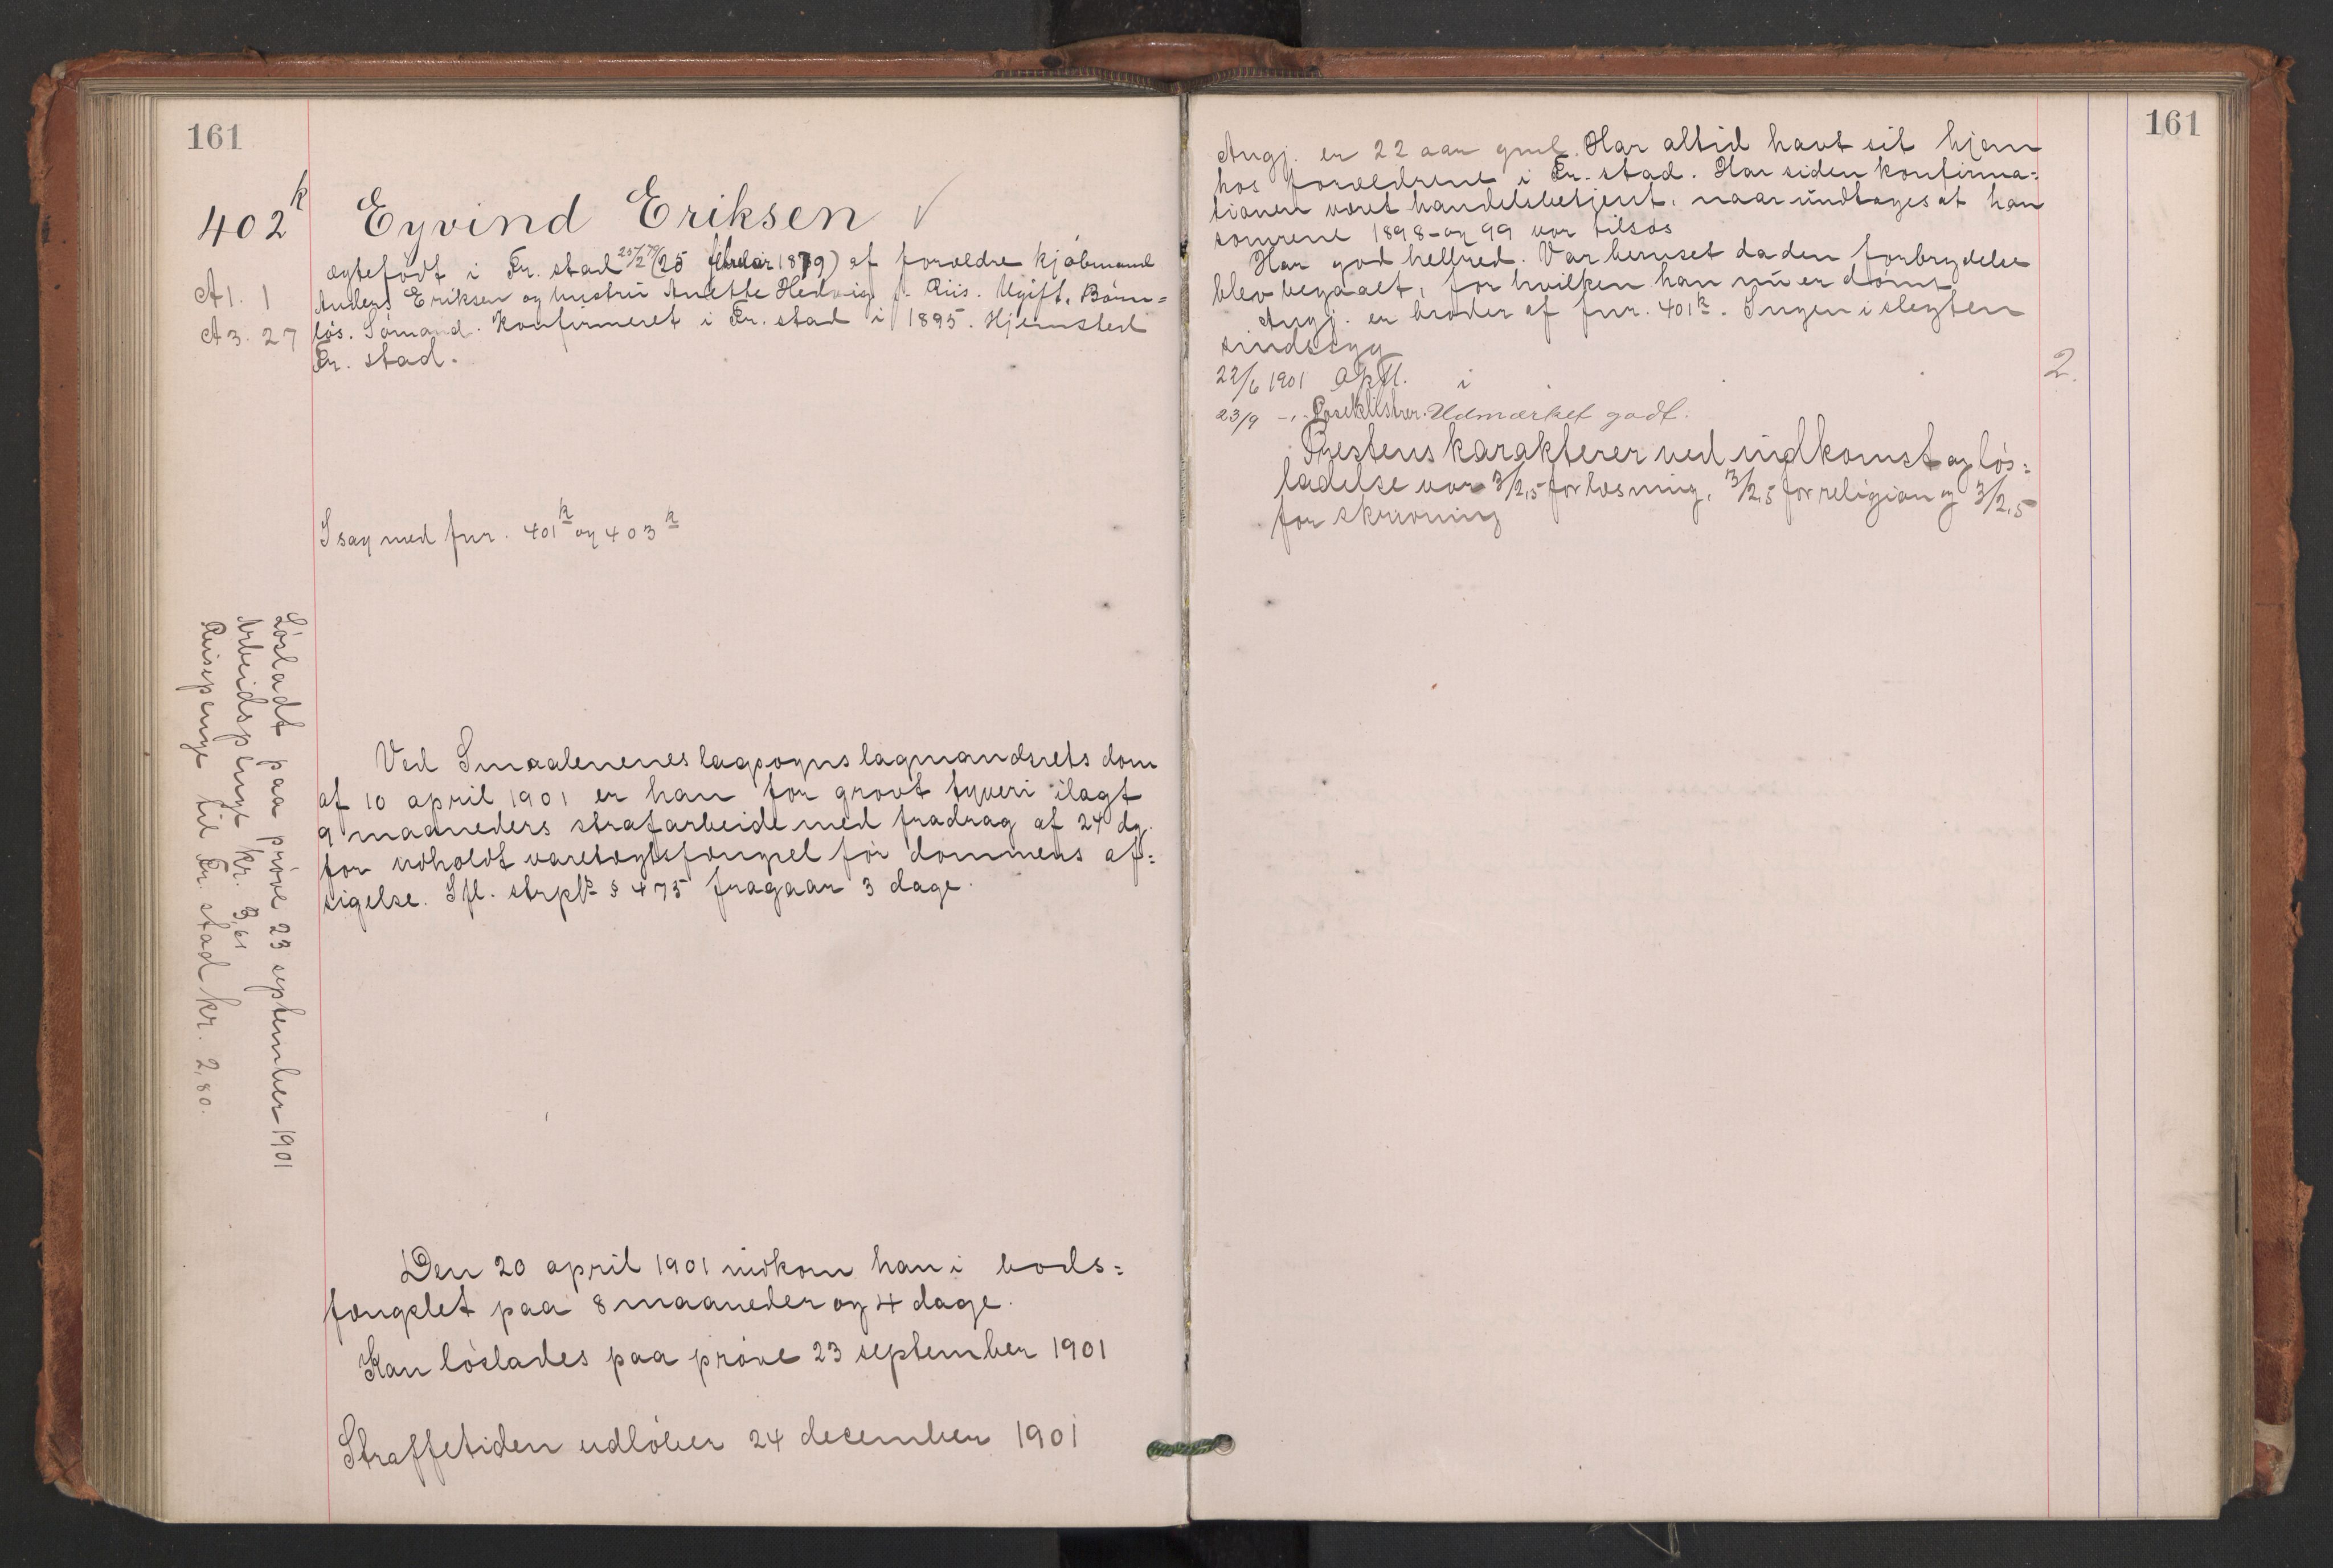 161
402k
Eyvind Eriksen ✓
A 1. 1
A 3. 27
ægtefödt i Fr. stad 25/2 79 (25 februar 1879) af forældre kjöbmand
Anders Eriksen og hustru Anette Hedvig f. Riis. Ugift. Barn=
lös. Sömand. Konfirmeret i Fr. stad i 1895. Hjemsted
Fr. stad.
I sag med fnr. 401k og 403k
Lösladt paa pröve 23 september 1901
Arbeidspenge kr. 3,61
Reisepenge til Fr. stad kr. 2,80.
Ved Smaalenenes lagsogns lagmandsrets dom
af 10 april 1901 er han for grovt tyveri ilagt
9 maaneders strafarbeide med fradrag af 24 dg.
for udholdt varetægtsfængsel för dommens af=
sigelse. Ifl. strpl. § 475 fragaar 3 dage.
Den 20 april 1901 indkom han i bods=
fængslet paa 8 maaneder og 4 dage.
Kan löslades paa pröve 23 september 1901
Straffetiden udlöber 24 december 1901
161
Angj. er 22 aar gml. Har altid havt sit hjem
hos forældrene i Fr. stad. Har siden konfirma=
tionen været handelsbetjent, naar undtages at han
somrene 1898 og 99 var tilsös
Har god helbred. Var beruset da den forbrydelse
blev begaaet, for hvilken han nu er dömt
Angj. er broder af fnr. 401k. Ingen i slegten
sindssyg
22/6 1901 Opfl. i 2.
23/9 -"- Poseklistrer. Udmærket godt.
Prestens karakterer ved indkomst og lös=
ladelse var 3/2,5 for læsning, 3/2,5 for religion og 3/2,5
for skrivning